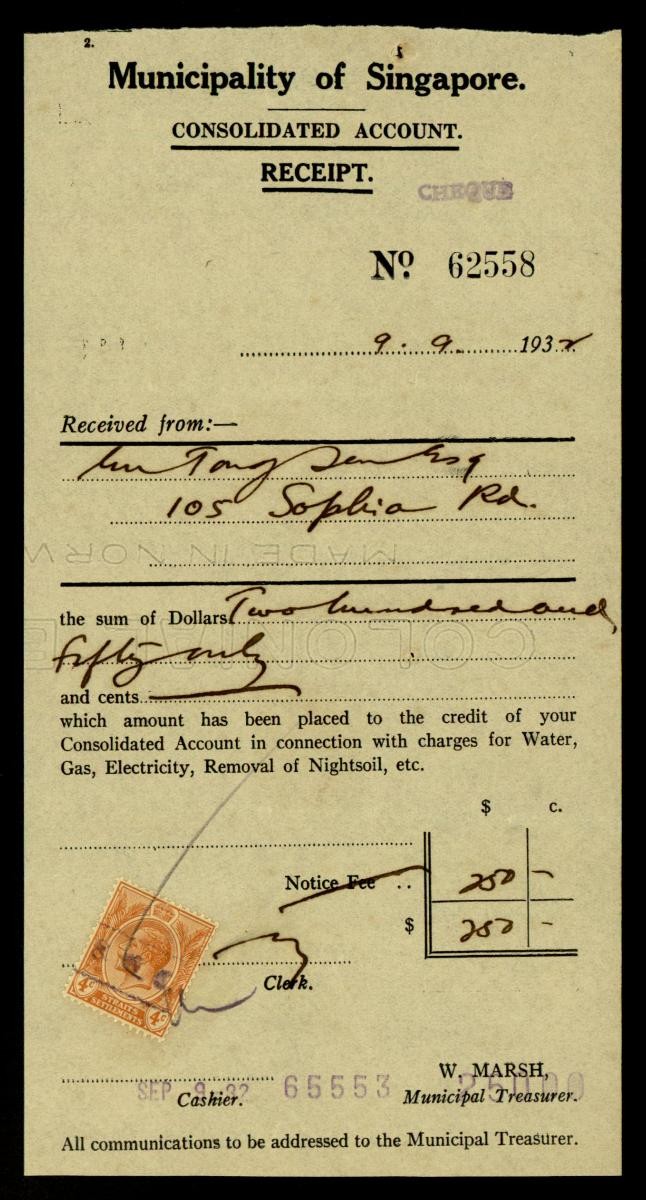 2.
Municipality of Singapore.
CONSOLIDATED ACCOUNT.
RECEIPT.
CHEQUE
Nº 62558
9. 9. 1932
Received from:—
Tong Sen Esq
105 Sophia Rd.
MADE IN NORW
the sum of Dollars Two hundred and
COLONI
fifty only
and cents
which amount has been placed to the credit of your
Consolidated Account in connection with charges for Water,
Gas, Electricity, Removal of Nightsoil, etc.
$ c.
Notice Fee .. 250 -
$ 250 -
Clerk.
4c STRAITS SETTLEMENTS 4c
W. MARSH,
SEP 9 32 65553 25000
Cashier. Municipal Treasurer.
All communications to be addressed to the Municipal Treasurer.